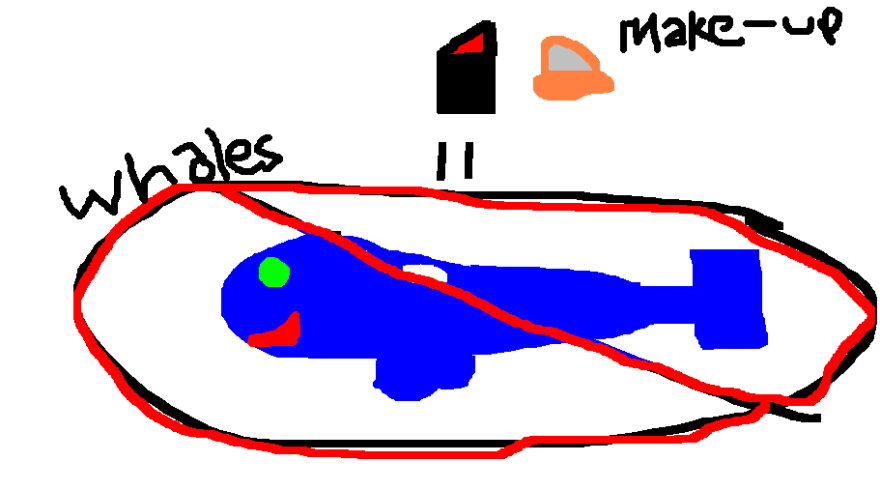 make-up
whales